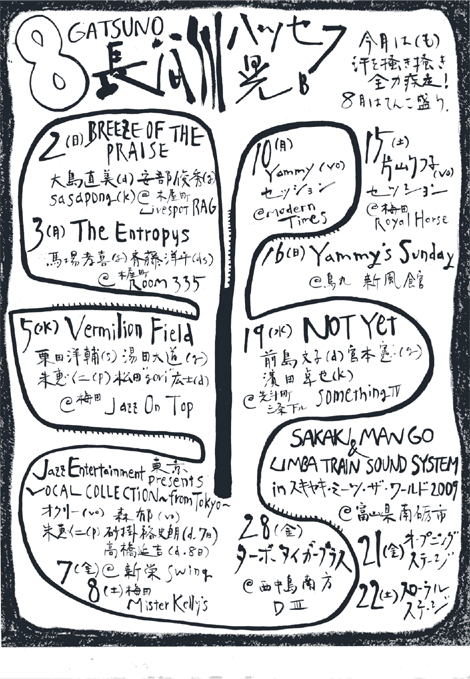 8 GATSUNO
長谷川晃
ハッセ
B
今月は(も)
汗を掻き掻き
全力疾走!
8月はてんこ盛り。
2(日) BREEZE OF THE
PRAISE
大島直美(d) 安部俊秀(g)
sasapong(k) @木屋町
Livespot RAG
3(月) The Entropys
馬場孝喜(g) 斉藤洋平(ds)
@木屋町
Room 335
5(水) Vermilion Field
栗田洋輔(s) 湯田大道(g)
朱恵仁(p) 松田"gori"広士(d)
@梅田 Jazz On Top
Jazz Entertainment 東京
presents
VOCAL COLLECTION~from Tokyo~
オクリー(vo) 森郁(vo)
朱恵仁(p) 砂掛裕史朗(d.7日)
高橋延吉(d.8日)
7(金) @新栄 Swing
8(土) 梅田
Mister Kelly's
10(月)
Yammy(vo)
セッション
@modern
Times
15(土)
片山(vo)
セッション
@梅田
Royal Horse
16(日) Yammy's Sunday
@烏丸 新風館
19(水) Not Yet
前島文子(d) 宮本憲(g)
濱田卓也(k)
@先斗町
三条下ル Something Ⅳ
SAKAKI MANGO
& LIMBA TRAIN SOUND SYSTEM
in スキヤキ・ミーツ・ザ・ワールド2009
@富山県南砺市
21(金) オープニング
ステージ
22(土) スローラル
ステージ
28(金)
ターボ、タイガープラス
@西中島南方
DⅢ